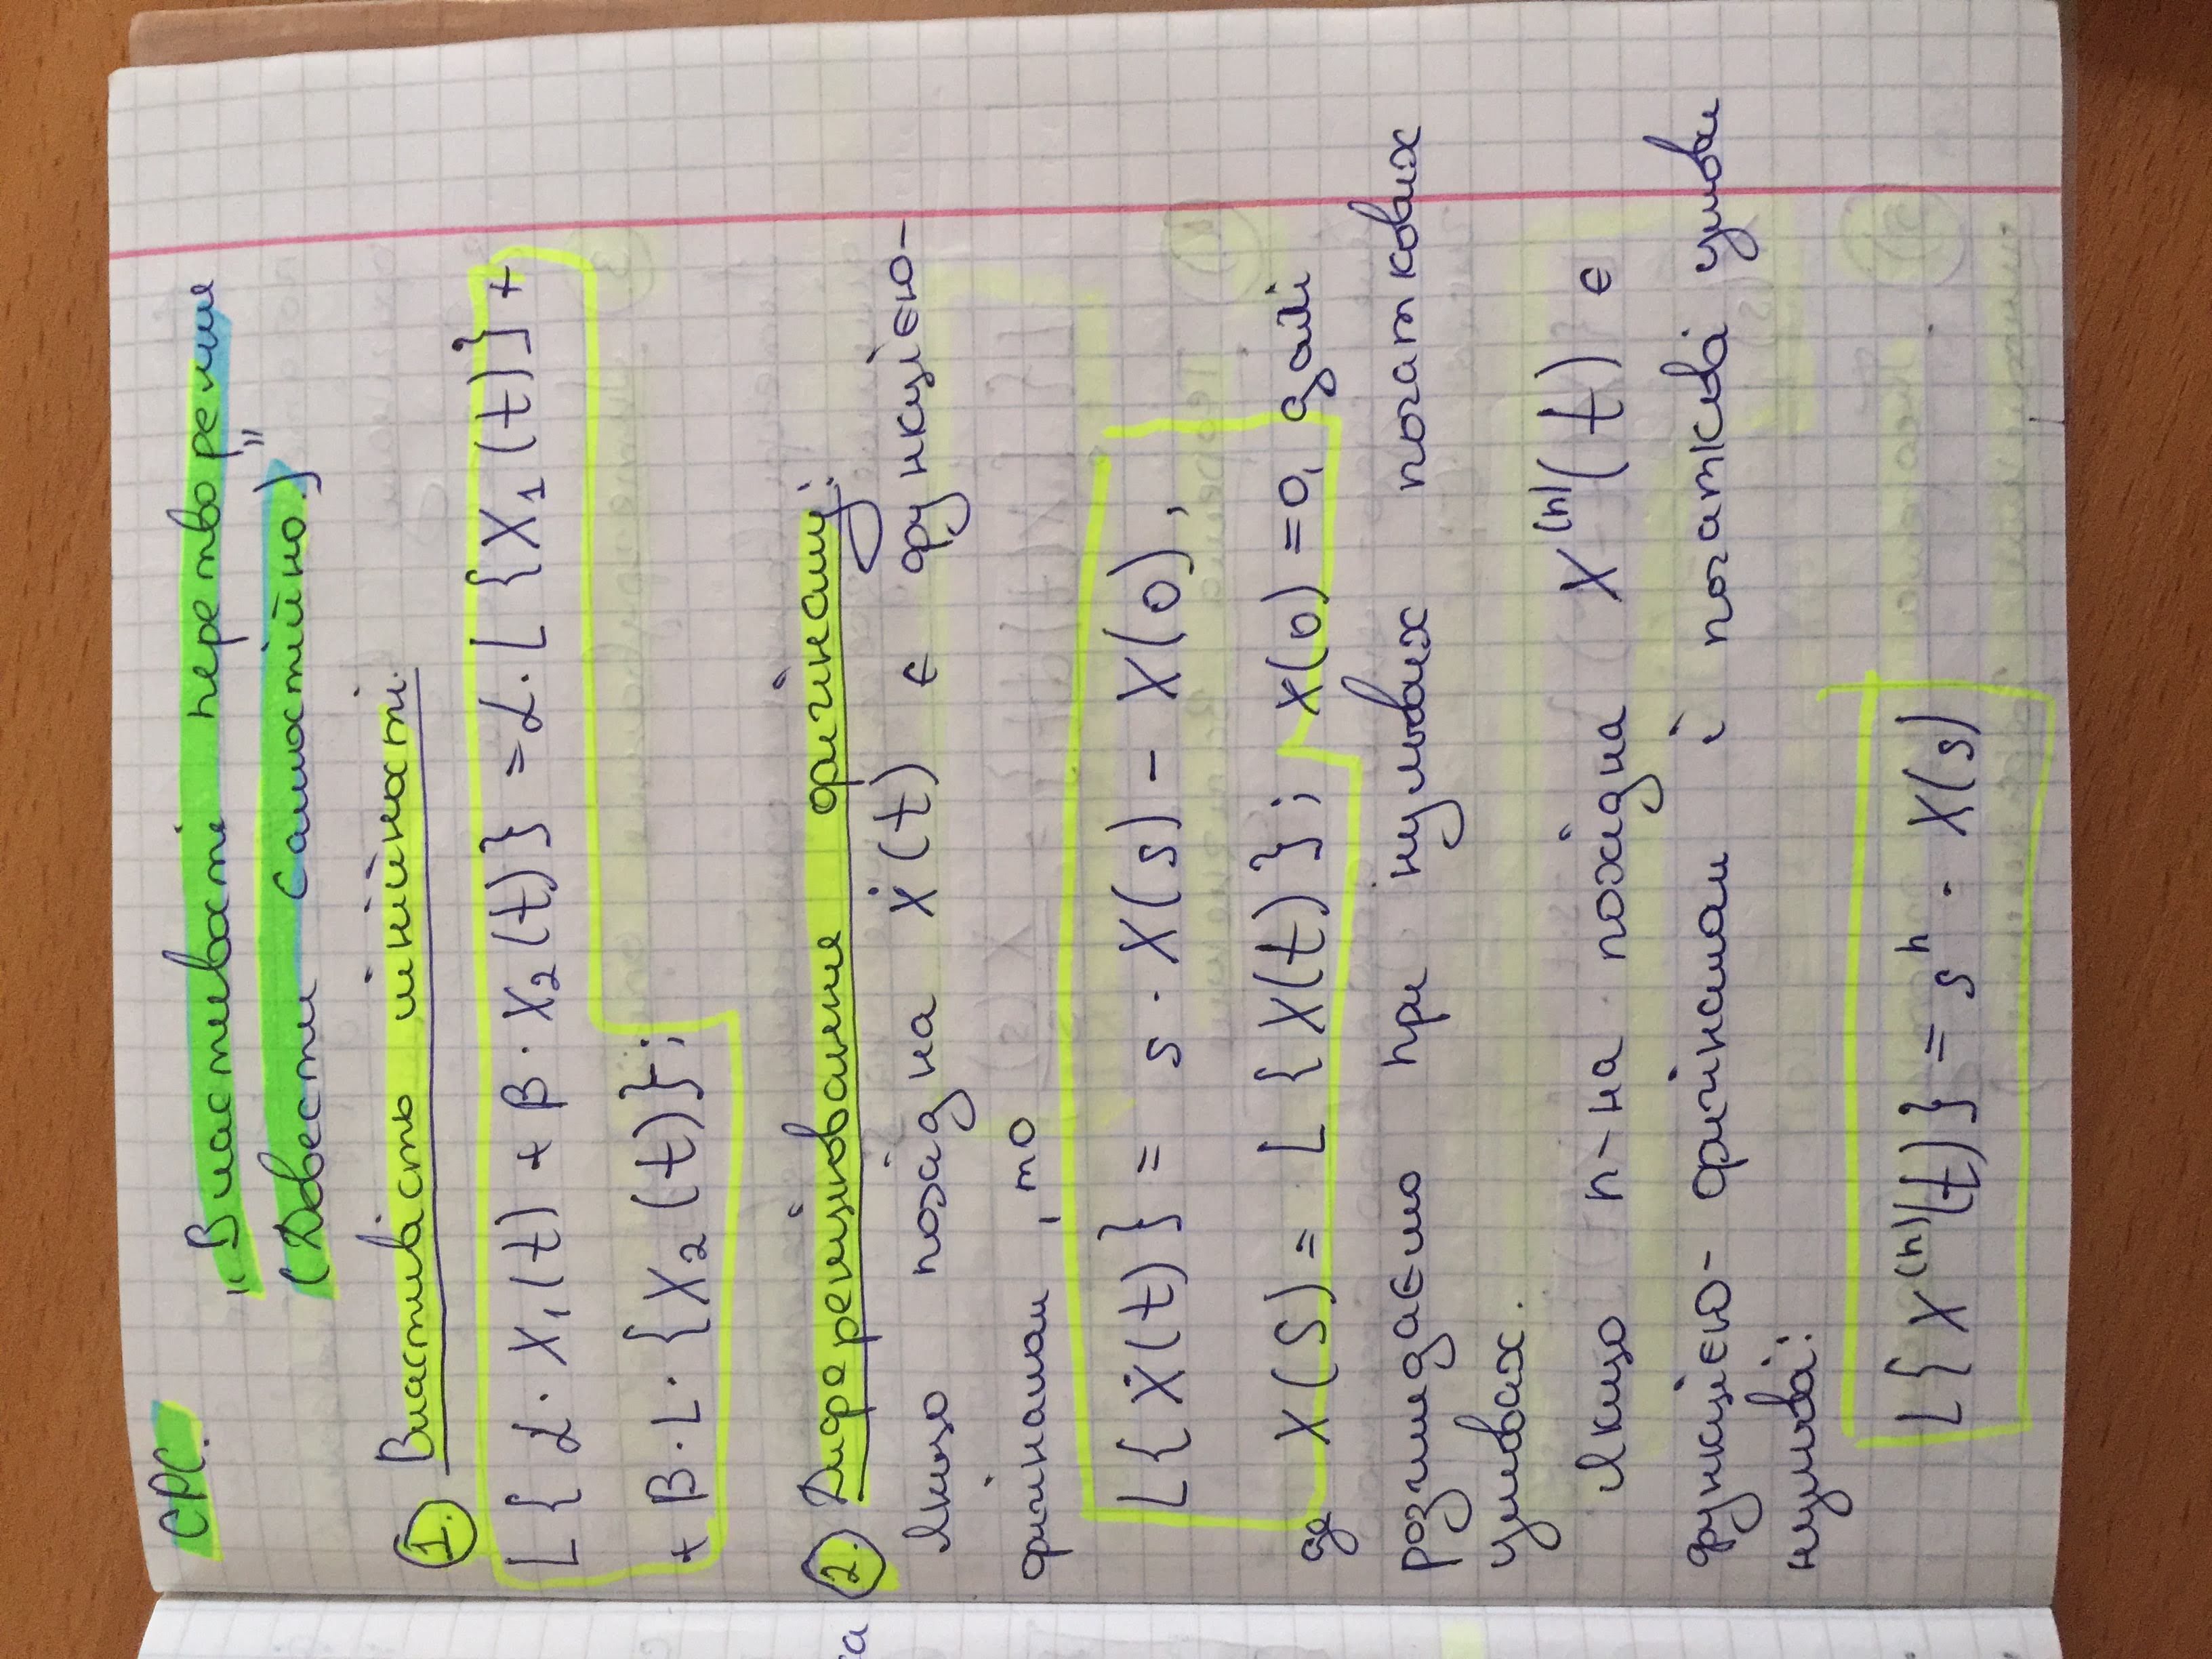 СРС.
„Властивості перетворення
(Довести самостійно.)”
1. Властивість лінійності.
L{ α · X₁(t) + β · X₂(t)} = α · L {X₁(t)} +
+ β · L · {X₂(t)};
2. Диференціювання оригіналу:
Якщо похідна Ẋ(t) є функцією-
оригіналом, то
L{Ẋ(t)} = s · X(s) – X(0),
де X(S) = L {X(t)}; X(0) = 0, далі
розглядаємо при нульових початкових
умовах.
Якщо n-на похідна X⁽ⁿ⁾(t) є
функцією- оригіналом і початкові умови
нульові:
L{X⁽ⁿ⁾(t)} = sⁿ · X(s)